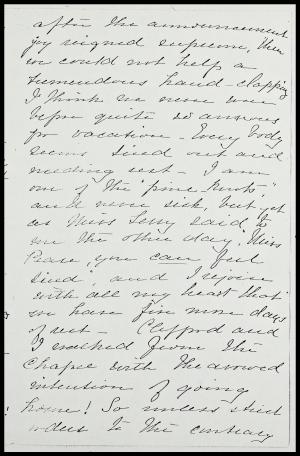 after the announcement
joy reigned supreme, then
we could not help a
tremendous hand-clapping
I think we never were
before quite so anxious
for vacation - Every body
seems tired out and
needing rest - I am
one of the "pine knots"
and never sick, but yet
as Miss said to
me the other day "Miss
you can feel
tired", and I rejoice
with all my heart that
we have five more days
of rest - Clifford and
I rushed from the
Chapel with the avowed
intention of going
home! So unless strict
orders to the contrary